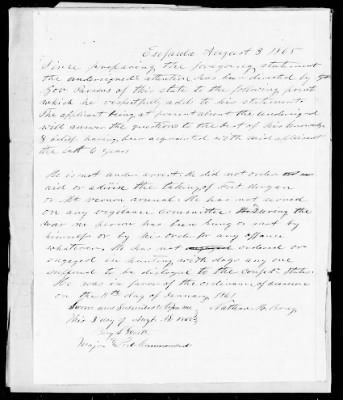 Eufaula August 8 1865
Since preparing the foregoing statement
the undersigned's attention has been directed by
Gov Parsons of this state to the following points
which he respectfully adds to his statement.
The applicant being at present absent the undersigned
will answer the questions to the best of his knowledge
& belief having been acquainted with said applicant
the last 6 years
He is not under arrest. He did not order
aid or advise the taking of Fort Morgan
or Mt Vernon arsenal. He has not served
on any vigilance committee. During the
war no person has been hung or shot by
himself or by his order for any offence
whatever. He has not ordered or
engaged in hunting with dogs any one
supposed to be disloyal to the Confed. States.
He was in favor of the ordinance of secession
on the 11th day of January 1861.
Sworn and Subscribed before me
This 8 day of Augt. AD 1865
Major Post Commanding